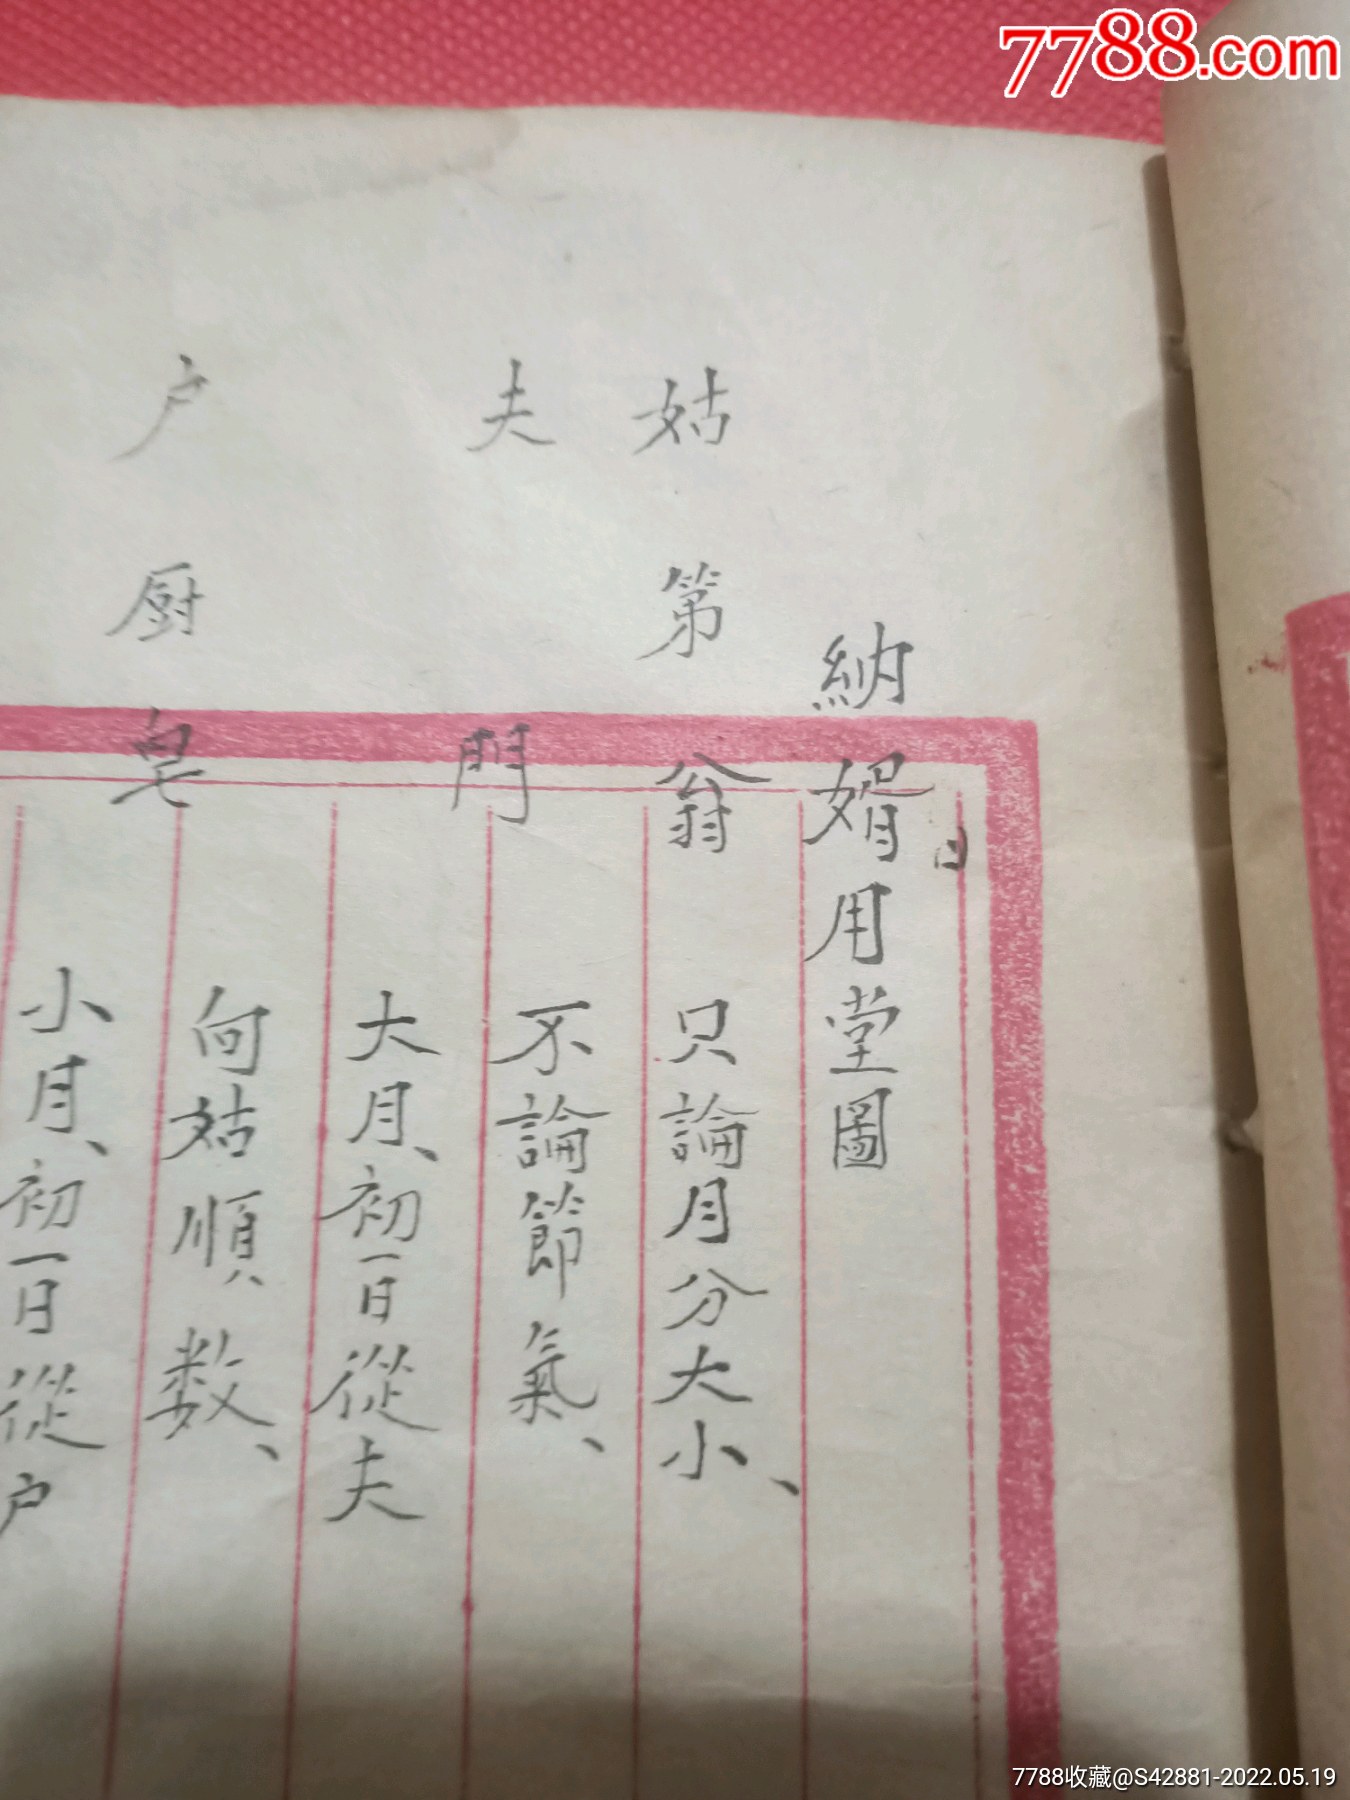 7788.com
納婿日用堂圖
姑 第 翁
夫 門
户 厨 皂
只論月分大小、
不論節氣、
大月、初一日從夫
向姑順数、
小月、初一日從户
7788收藏@S42881-2022.05.19